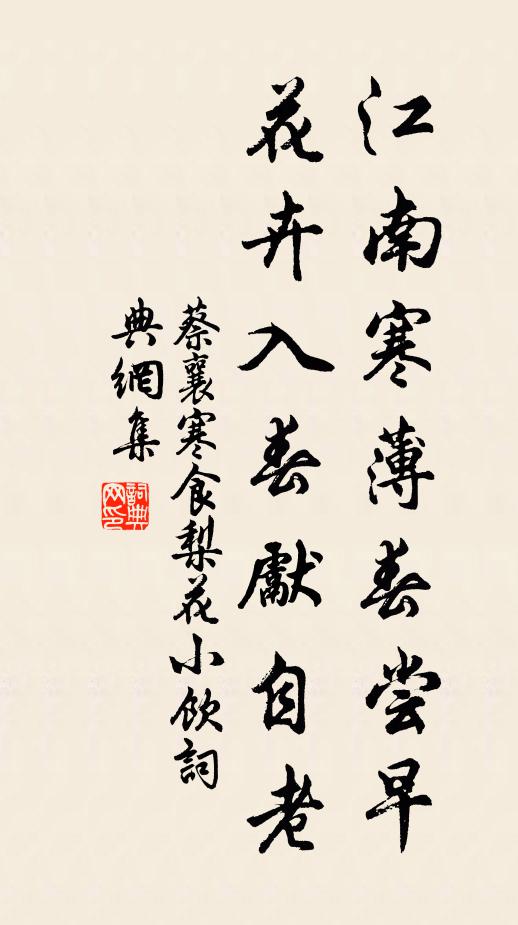 江南寒薄春尝早
花卉入春獻自老
蔡襄寒食梨花小飲詞
典網集
詞典网印